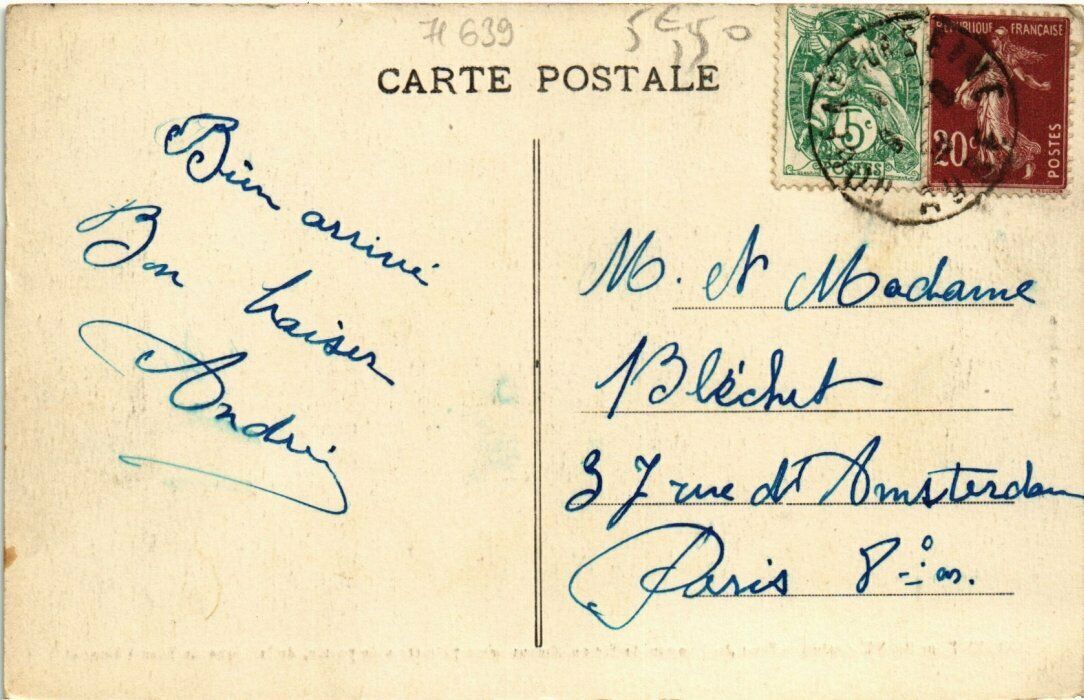 H 639
5€50
CARTE POSTALE
5c
RÉPUBLIQUE FRANÇAISE
20c
POSTES
Bien arrivé
Bon baiser
André
M. et Madame
Bléchet
37 rue d'Amsterdam
Paris 8-